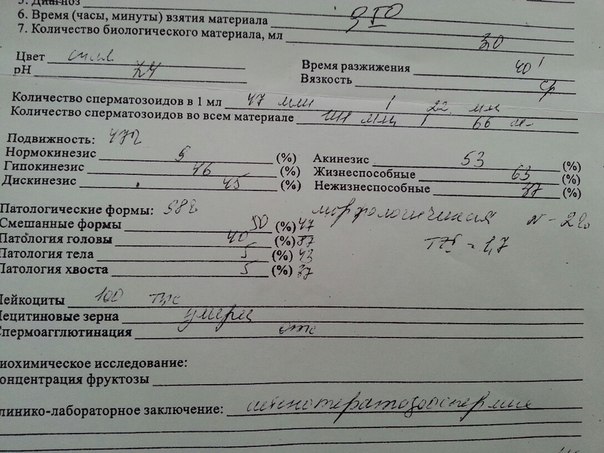 5. Диагноз
6. Время (часы, минуты) взятия материала
7. Количество биологического материала, мл 3,0
Цвет
pH 7,4
Время разжижения 40'
Вязкость ср
Количество сперматозоидов в 1 мл 47 млн / 22 млн
Количество сперматозоидов во всем материале 141 млн / 66
Подвижность: 47%
Нормокинезис (%)
Гипокинезис 46 (%)
Дискинезис (%)
Акинезис 53 (%)
Жизнеспособные 63 (%)
Нежизнеспособные 37 (%)
Патологические формы: 98% морфологическая N - 2%
Смешанные формы 50 (%) 47
Патология головы 40 (%) TZI = 1,7
Патология тела 5 (%)
Патология хвоста 5 (%) 37
Лейкоциты 100 тыс
Лецитиновые зерна умерен
Спермоагглютинация отс
Биохимическое исследование:
Концентрация фруктозы
Клинико-лабораторное заключение: астенотератозооспермия